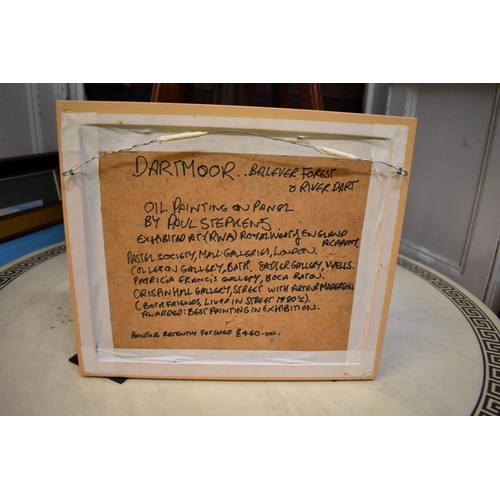 DARTMOOR.. BELLEVER FOREST
& RIVER DART
OIL PAINTING ON PANEL
BY PAUL STEPHENS.
EXHIBITED AT: (RWA) ROYAL WEST of ENGLAND
ACADEMY.
PASTEL SOCIETY, MALL GALLERIES, LONDON.
COLLETON GALLERY, BATH, SADLER GALLERY, WELLS.
PATRICIA FRANCIS GALLERY, BOCA RATON.
GALLERY, STREET WITH ARTHUR
(BOTH FRIENDS, LIVED IN STREET 1980's).
AWARDED: BEST PAINTING IN EXHIBITION.
RECENTLY FETCHED £460.00.